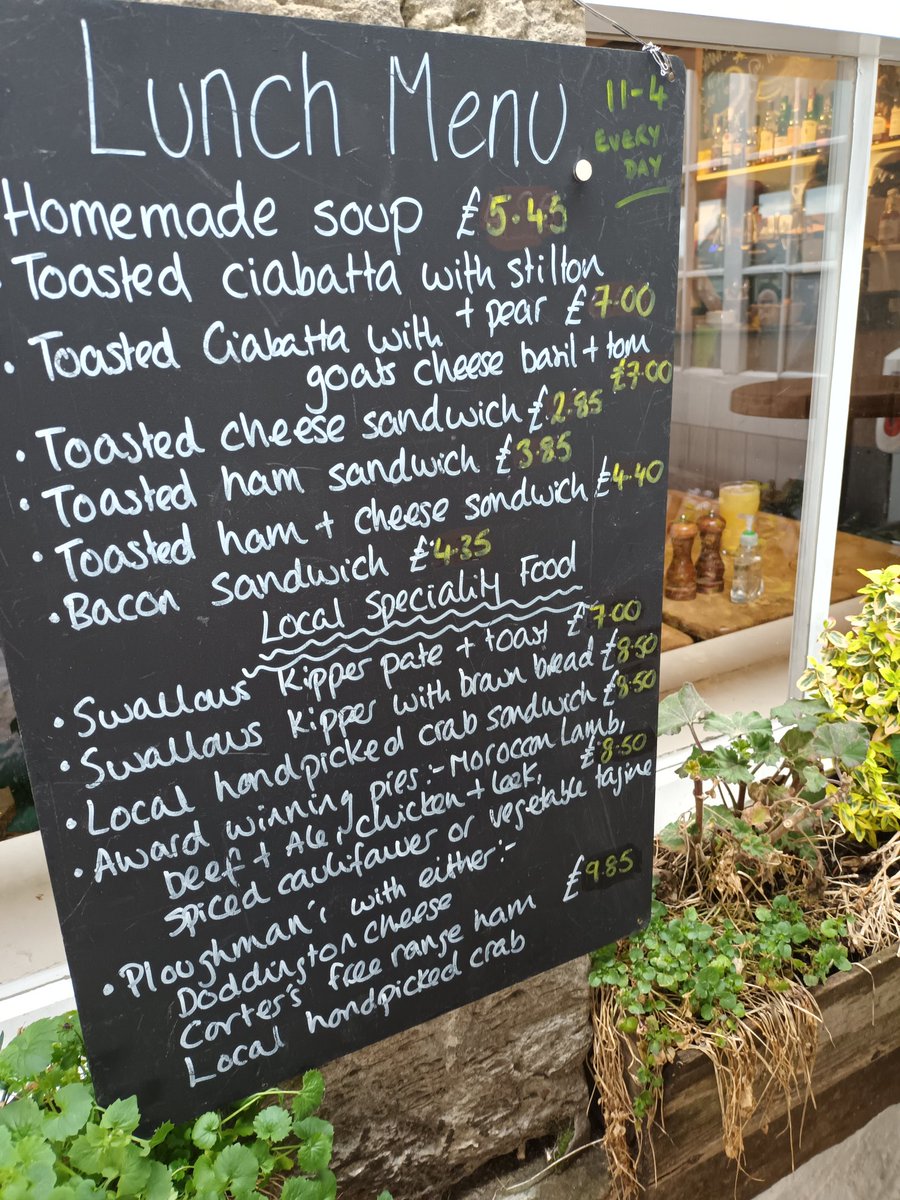 Lunch Menu
11-4
EVERY
DAY
Homemade soup £5.45
• Toasted ciabatta with stilton
+ pear £7.00
• Toasted Ciabatta with
goats cheese basil + tom
£7.00
• Toasted cheese sandwich £2.85
• Toasted ham sandwich £3.85
• Toasted ham + cheese sandwich £4.40
• Bacon sandwich £4.35
Local Speciality Food
• Swallows Kipper pate + toast £7.00
• Swallows Kipper with brown bread £8.50
• Local handpicked crab sandwich £8.50
• Award winning pies:- Moroccan Lamb,
beef + Ale, chicken + leek, £8.50
spiced cauliflower or vegetable tajine
• Ploughman's with either:-
Doddington cheese
Carter's free range ham £9.85
Local handpicked crab